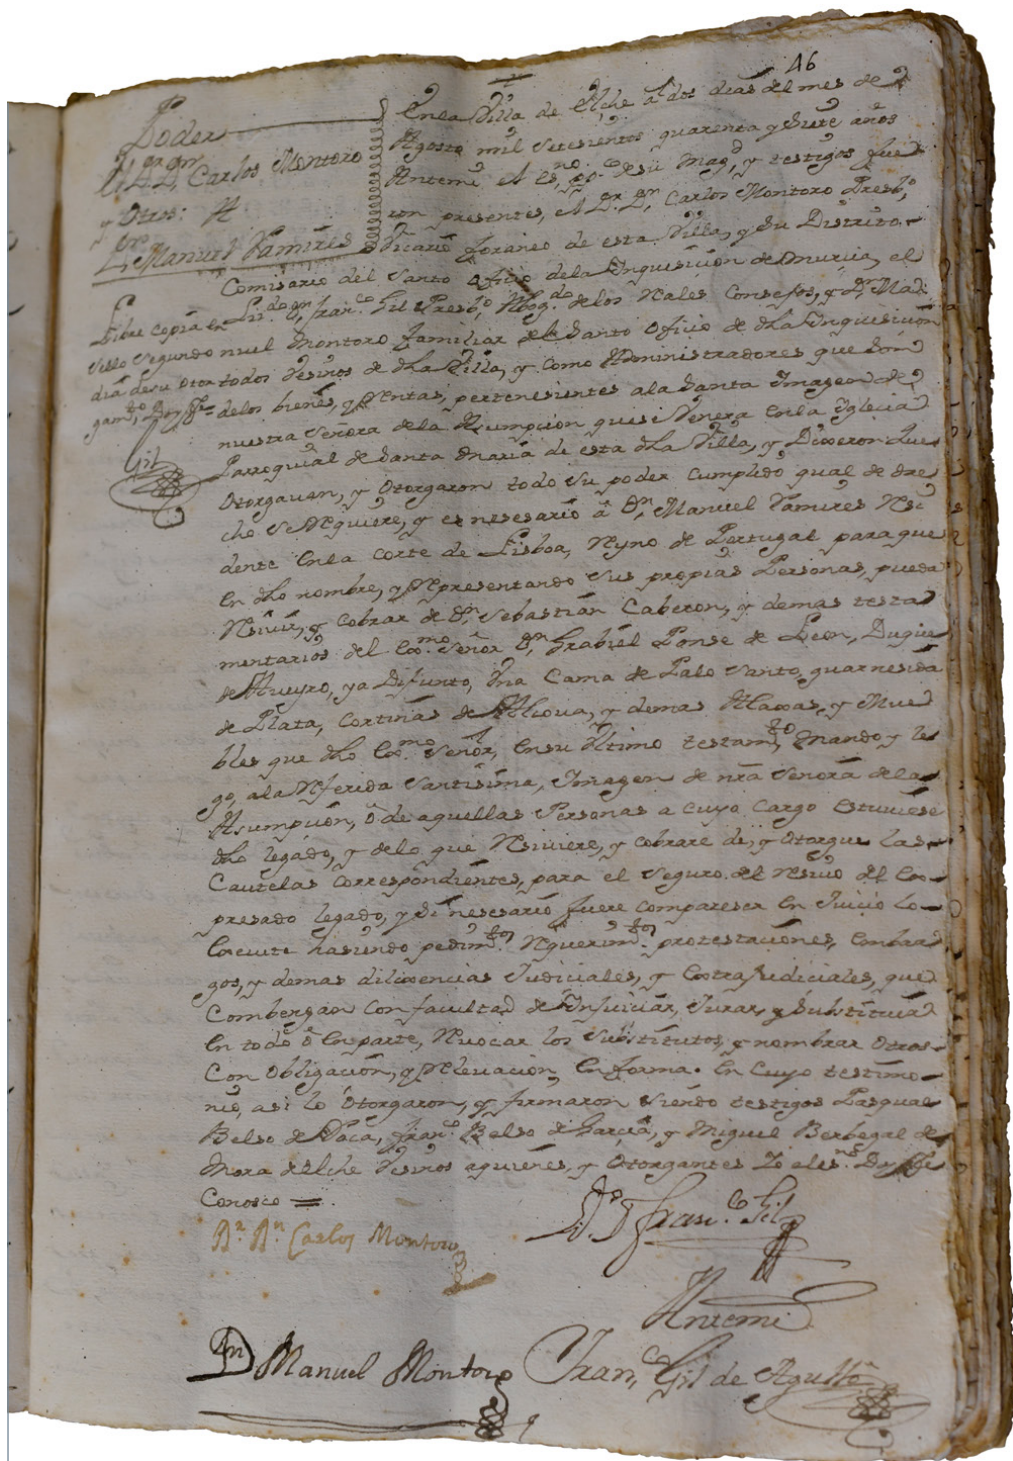 46
Poder
El Dr. Dn. Carlos Montoro
y Otros: A
Dn. Manuel Ramires
Libre copia en
Sello Segundo
dia de su otor
gamto. Doy fe
Gil
En la Villa de Elche a los dos dias del mes de
Agosto mil Setesientos quarenta y Siete años
Antemi el Esno. ppco. de su Magd, y testigos fue
ron presentes, el Dr. Dn. Carlos Montoro Presbo,
Vicario foraneo de esta Villa, y Su Distrito,
Comisario del Santo Oficio dela Inquisicion de Murcia, el
Lizdo. Dn. Franco. Gil Presbo, Abogdo. de los Rales Consejos, y Dn. Ma
nuel Montoro Familiar del Santo Oficio de dha Inquisicion
todos Vesinos de dha Villa, y como Administradores que Son
delos bienes, y Rentas, pertenesientes ala Santa Imagen de
nuestra Señora dela Asumpcion que se Venera en la Yglecia
Parroquial de Santa Maria de esta dha Villa, y Dixeron Que
Otorgavan, y Otorgaron todo Su poder Cumplido qual de dre
cho Se Requiere, y es nesesario â Dn. Manuel Ramires Resi
dente en la Corte de Lisboa, Reyno de Portugal para que
en dho nombre, y Representando Sus propias Personas, pueda
Resivir, y Cobrar de Dn. Sebastian Caberon, y demas testa
mentarios del Exmo. Señor Dn. Grabiel Ponse de Leon, Duque
de Aveyro, ya Difunto, Una Cama de Palo Santo, guarnesida
de Plata, Cortinas de Alcova, y demas Alaxas, y Mue
bles que dho Exmo. Señor, en su Ultimo testamto, Mando y le
go, a la Referida Santisima, Imagen de nra Señora dela
Asumpcion, ô de aquellas Personas a cuyo Cargo estuviese
dho legado, y delo que Resiviere, y cobrare de, y Otorgue las
Cautelas Correspondientes, para el Seguro del Resivo del Ex
presado legado, y Si nesesario fuere compareser en Juicio lo
execute hasiendo pedimtos. Requerimtos. protestaciones, embar
gos, y demas dilixencias Judiciales, y Extrajudiciales, que
Combengan Con facultad de Enjuiciar, Jurar, y Substituir
en todo ô en parte, Revocar los Substitutos, y nombrar Otros
Con Obligacion, y Relevacion en forma. En Cuyo testimo
nio, asi lo Otorgaron, y firmaron Siendo testigos Pasqual
Belso de Vaca, Franco. Belso de Garcia, y Miguel Berbegal de
Mora de Elche Vesinos aquienes, y Otorgantes Yo el esno. Doy fe
Conosco =
Dr. Dn. Carlos Montoro
Ldo. D Franco. Gil
Antemi
Dn Manuel Montoro
Franco. Gil de Agulló